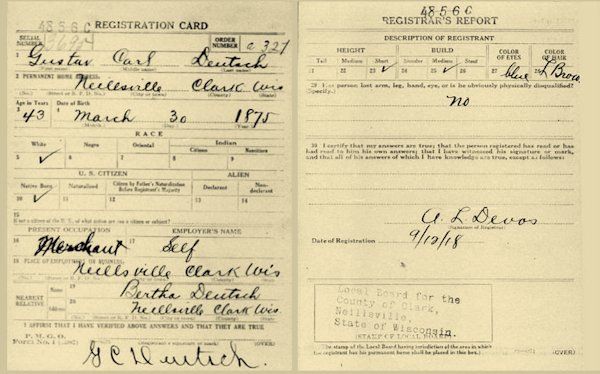 REGISTRATION CARD
SERIAL NUMBER
ORDER NUMBER a 327
Gustav Carl Deutsch
(First name) (Middle name) (Last name)
2 PERMANENT HOME ADDRESS:
Neillsville Clark Wis
(No.) (Street or R. F. D. No.) (City or town) (County) (State)
Age in Years Date of Birth
43 March 30 1875
(Month.) (Day.) (Year.)
RACE
White Negro Oriental Indian
Citizen Noncitizen
5 ✓ 6 7 8 9
U. S. CITIZEN ALIEN
Native Born Naturalized Citizen by Father's Naturalization Before Registrant's Majority Declarant Non-declarant
10 ✓ 11 12 13 14
15
If not a citizen of the U. S., of what nation are you a citizen or subject?
PRESENT OCCUPATION EMPLOYER'S NAME
16 Merchant 17 Self
18 PLACE OF EMPLOYMENT OR BUSINESS:
Neillsville Clark Wis
(No.) (Street or R. F. D. No.) (City or town) (County) (State)
NEAREST RELATIVE
Name 19 Bertha Deutsch
Address 20 Neillsville Clark Wis
(No.) (Street or R. F. D. No.) (City or town) (County) (State)
I AFFIRM THAT I HAVE VERIFIED ABOVE ANSWERS AND THAT THEY ARE TRUE
P. M. G. O.
Form No. 1
G C Deutsch
(Registrant's signature or mark) (OVER)
48-56 C
REGISTRAR'S REPORT
DESCRIPTION OF REGISTRANT
HEIGHT BUILD COLOR OF EYES COLOR OF HAIR
Tall Medium Short Slender Medium Stout
21 22 23 ✓ 24 25 ✓ 26 27 blue 28
29 Has person lost arm, leg, hand, eye, or is he obviously physically disqualified?
(Specify.)
No
30 I certify that my answers are true; that the person registered has read or has
had read to him his own answers; that I have witnessed his signature or mark,
and that all of his answers of which I have knowledge are true, except as follows:
A. L. Devos
(Signature of Registrar)
Date of Registration 9/12/18
Local Board for the
County of Clark,
Neillsville,
State of Wisconsin.
(STAMP OF LOCAL BOARD)
(The stamp of the Local Board having jurisdiction of the area in which
the registrant has his permanent home shall be placed in this box.)
(OVER)